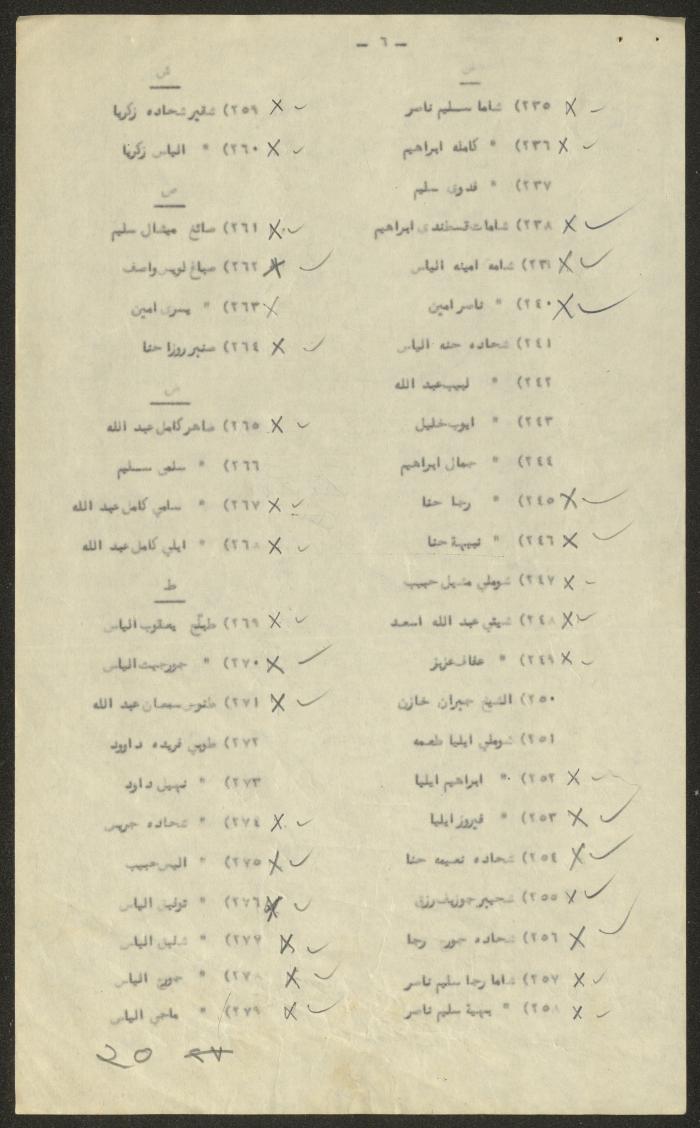 - ٦ -
ش
٢٣٥) شاما سليم ناصر
٢٣٦) " كامله ابراهيم
٢٣٧) " فدوى سليم
٢٣٨) شامات قسطندى ابراهيم
٢٣٩) شامه امينه الياس
٢٤٠) " ناصر امين
٢٤١) شحاده حنه الياس
٢٤٢) " لبيب عبد الله
٢٤٣) " ايوب خليل
٢٤٤) " جمال ابراهيم
٢٤٥) " رجا حنا
٢٤٦) " نبيهة حنا
٢٤٧) شوملي متيل حبيب
٢٤٨) شيتي عبد الله اسعد
٢٤٩) " عفاف عزيز
٢٥٠) الشيخ جبران خازن
٢٥١) شوملي ايليا طعمه
٢٥٢) " ابراهيم ايليا
٢٥٣) " فيروز ايليا
٢٥٤) شحاده نعيمه حنا
٢٥٥) شحيبر جوزيف رزق
٢٥٦) شحاده جورج رجا
٢٥٧) شاما رجا سليم ناصر
٢٥٨) " بهية سليم ناصر
ش
٢٥٩) شقير شحاده زكريا
٢٦٠) " الياس زكريا
ص
٢٦١) صائغ ميشال سليم
٢٦٢) صباغ لويس واصف
٢٦٣) " يسرى امين
٢٦٤) صنبر روزا حنا
ض
٢٦٥) ضاهر كامل عبد الله
٢٦٦) " سلمى سليم
٢٦٧) " سامي كامل عبد الله
٢٦٨) " ايلي كامل عبد الله
ط
٢٦٩) يعقوب الياس
٢٧٠) " جورجيت الياس
٢٧١) طنوس سمعان عبد الله
٢٧٢) طوبي فريده داوود
٢٧٣) " نهيل داود
٢٧٤) " شحاده جريس
٢٧٥) " اليس حبيب
٢٧٦) " توفيق الياس
٢٧٧) " شفيق الياس
٢٧٨) " جورج الياس
٢٧٩) " ماجي الياس